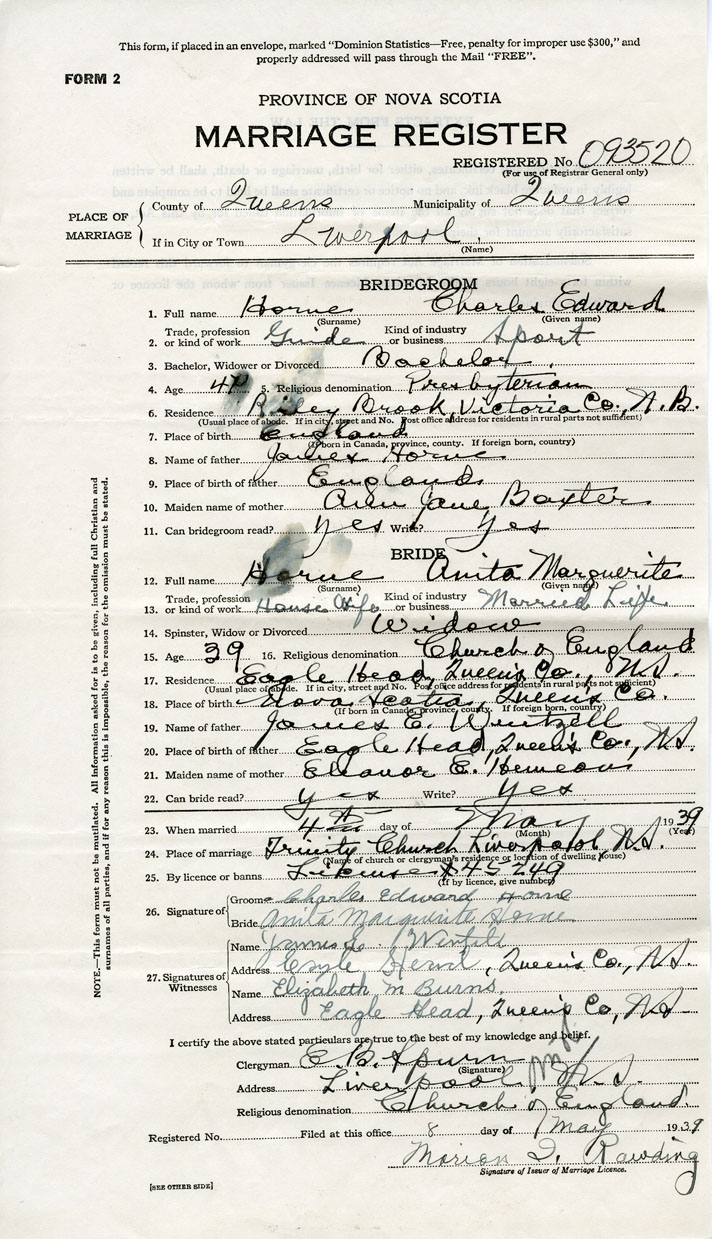 This form, if placed in an envelope, marked "Dominion Statistics—Free, penalty for improper use $300," and
properly addressed will pass through the Mail "FREE".
FORM 2
PROVINCE OF NOVA SCOTIA
MARRIAGE REGISTER
REGISTERED No. 093520
(For use of Registrar General only)
PLACE OF MARRIAGE
County of Queens Municipality of Queens
If in City or Town Liverpool
(Name)
BRIDEGROOM
1. Full name Horne Charles Edward
(Surname) (Given name)
2. Trade, profession or kind of work Guide Kind of industry or business Sport
3. Bachelor, Widower or Divorced Bachelor
4. Age 5. Religious denomination Presbyterian
6. Residence Riley Brook, Victoria Co., N.B.
(Usual place of abode. If in city, street and No. Post office address for residents in rural parts not sufficient)
7. Place of birth England
(If born in Canada, province, county. If foreign born, country)
8. Name of father James Horne
9. Place of birth of father England
10. Maiden name of mother Ann Jane Baxter
11. Can bridegroom read? Yes Write? Yes
BRIDE
12. Full name Horne Anita Marguerite
(Surname) (Given name)
13. Trade, profession or kind of work House Wife Kind of industry or business Married Life
14. Spinster, Widow or Divorced Widow
15. Age 39 16. Religious denomination Church of England
17. Residence Eagle Head, Queen's Co., N.S.
(Usual place of abode. If in city, street and No. Post office address for residents in rural parts not sufficient)
18. Place of birth Nova Scotia, Queen's Co.
(If born in Canada, province, county. If foreign born, country)
19. Name of father James E. Wentzell
20. Place of birth of father Eagle Head, Queen's Co., N.S.
21. Maiden name of mother Eleanor E. Hemeon
22. Can bride read? Yes Write? Yes
23. When married 4th day of May 1939
(Month) (Year)
24. Place of marriage Trinity Church Liverpool, N.S.
(Name of church or clergyman's residence or location of dwelling house)
25. By licence or banns License #45249
(If by licence, give number)
26. Signature of
Groom Charles Edward Horne
Bride Anita Marguerite Horne
27. Signatures of Witnesses
Name
Address Eagle Head, Queen's Co., N.S.
Name Elizabeth M Burns,
Address Eagle Head, Queen's Co, N.S.
I certify the above stated particulars are true to the best of my knowledge and belief.
Clergyman E.B. Spurr
(Signature)
Address Liverpool N.S.
Religious denomination Church of England
Registered No. Filed at this office 8 day of May 1939
Marion I. Rawding
Signature of Issuer of Marriage Licence.
[SEE OTHER SIDE]
NOTE.—This form must not be mutilated. All information asked for is to be given, including full Christian and
surnames of all parties, and if for any reason this is impossible, the reason for the omission must be stated.